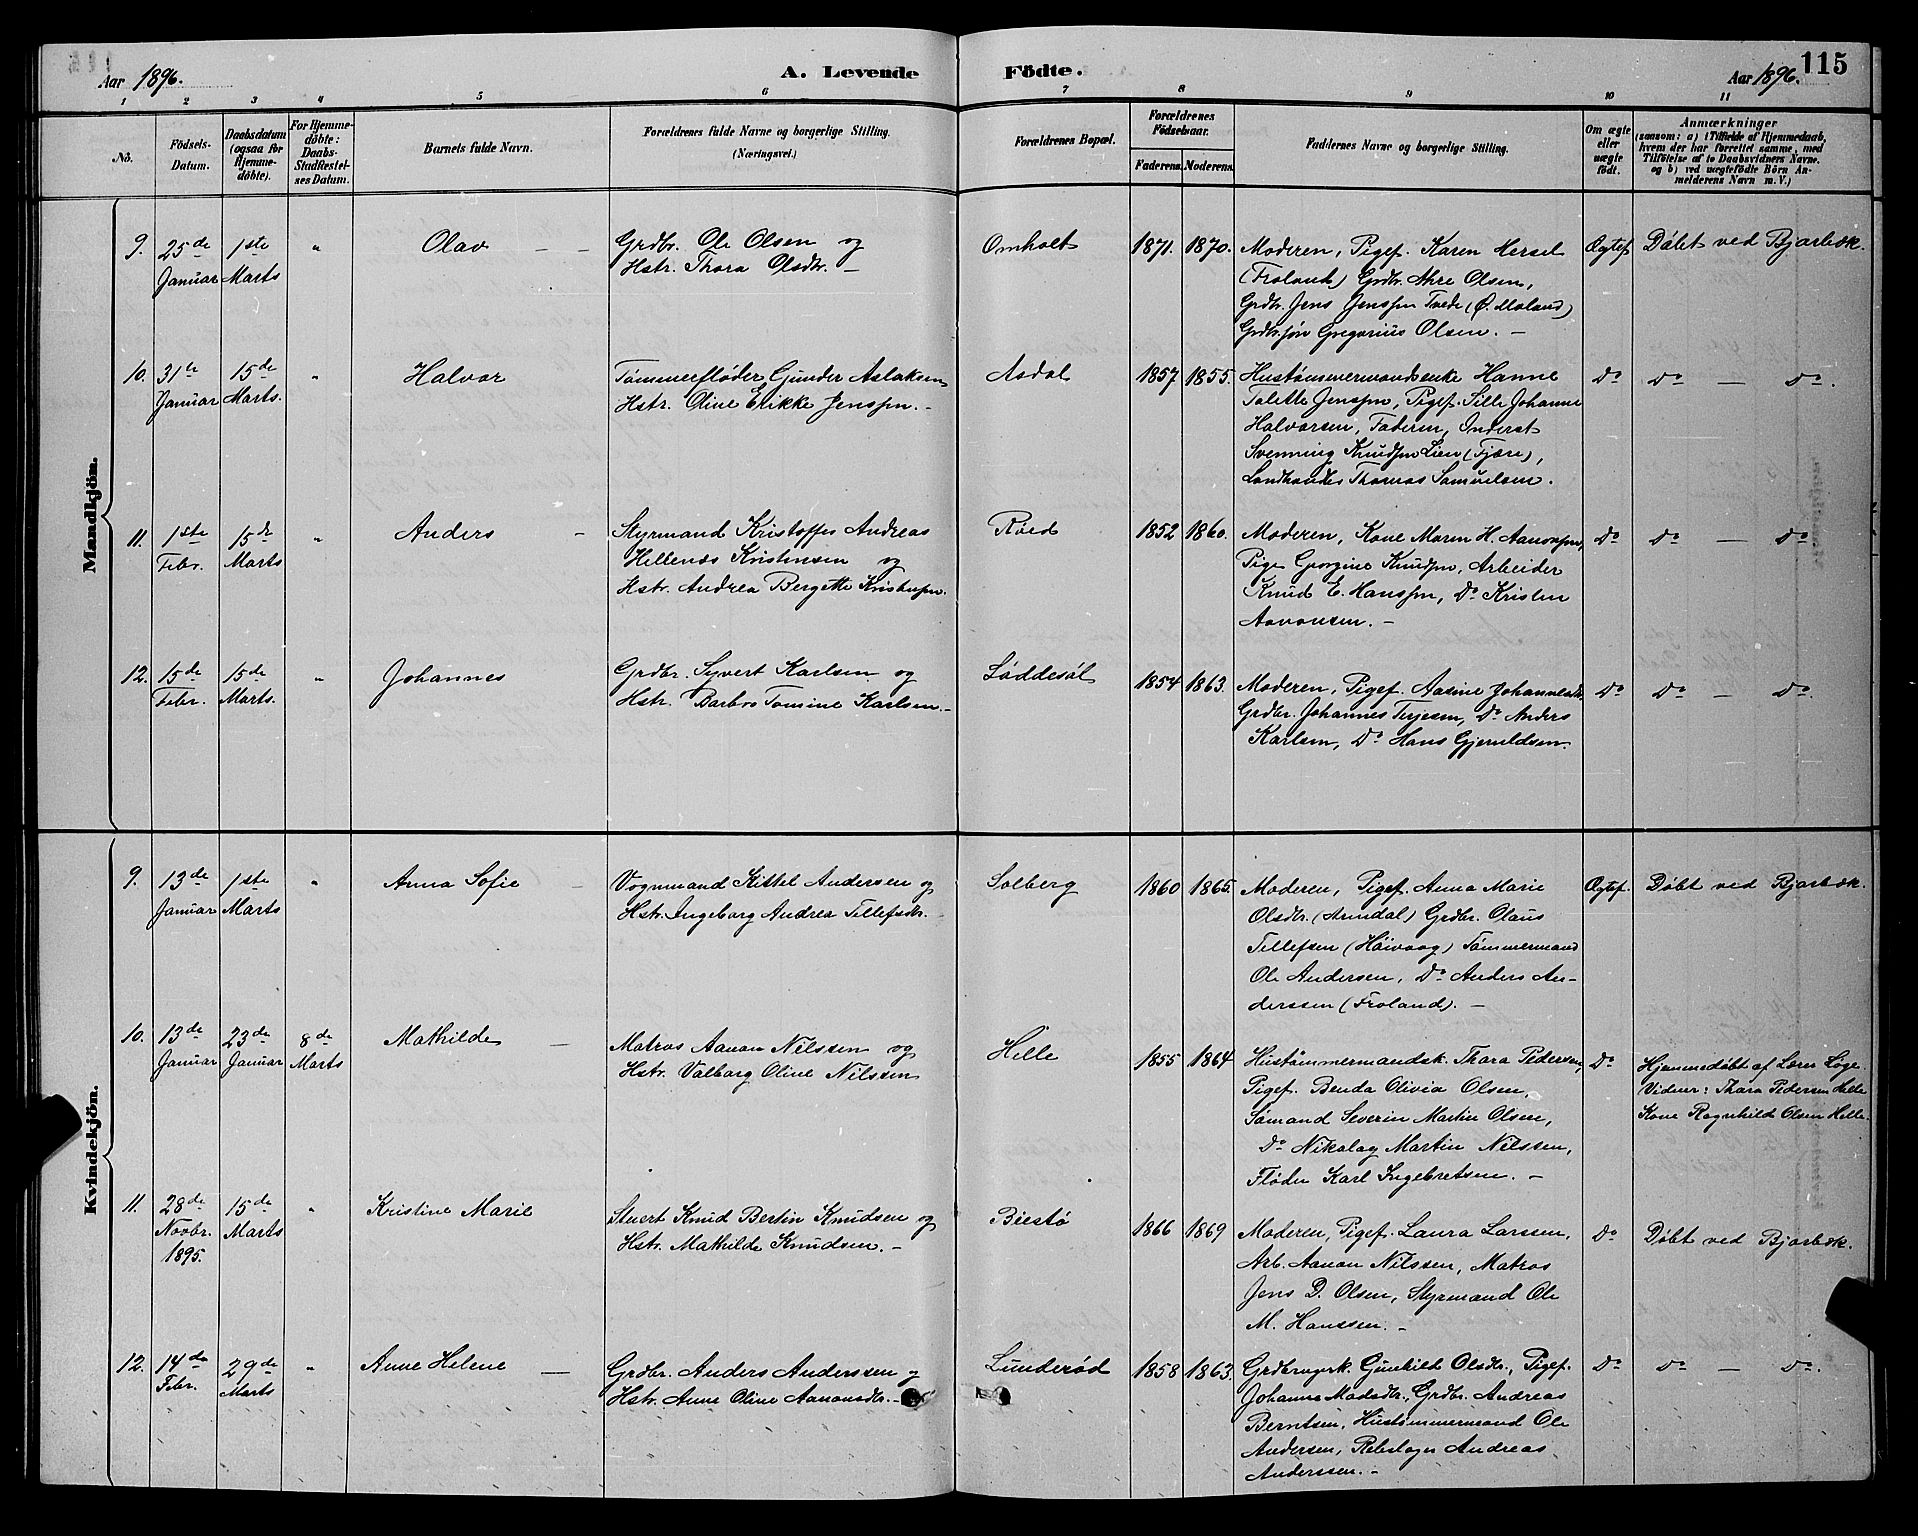 Aar 1896. A. Levende Födte. Aar 1896. 115
1 2 3 4 5 6 7 8 9 10 11
No.
Födsels-
Datum.
Daabsdatum
(ogsaa for
Hjemme-
döbte).
For Hjemme-
döbte:
Daabs-
Stadfæstel-
ses Datum.
Barnets fulde Navn.
Forældrenes fulde Navne og borgerlige Stilling.
(Næringsvei.)
Forældrenes Bopæl.
Forældrenes
Födselsaar.
Faderens. Moderens.
Faddernes Navne og borgerlige Stilling.
Om ægte
eller
uægte
födt.
Anmærkninger
(saasom: a) i Tilfælde af Hjemmedaab,
hvem der har forrettet samme, med
Tilföielse af to Daabsvidners Navne.
og b) ved uægtefödte Börn An-
melderens Navn m. V.)
Mandkjön.
9. 25de
Januar
1ste
Marts
"
Olav — —
Grdbr. Ole Olsen og
Hstr. Thora Olsdtr. —
Omholt
1871. 1870.
Moderen, Pigef. Karen Hersel
(Froland) Grdbr. Ahre Olsen,
Grdbr. Jens Jenssen Tvede (Ø. Moland)
Grdbr.søn Gregorius Olsen. —
Ægtef.
Døbt ved Bjorbæk.
10. 31te
Januar
15de
Marts.
"
Halvor
Tømmerfløder Gunder Aslaksen
Hstr. Oline Elikke Jenssen. —
Asdal
1857 1855.
Hustømmermandsenke Hanne
Talette Jenssen, Pigef. Sille Johanne
Halvorsen, Faderen, Inderst
Svenning Knudsen Lien (Fjære),
Landhandler Thomas Samuelsen.
Do
Do — Do.
11. 1ste
Febr.
15de
Marts
"
Anders —
Styrmand Kristoffer Andreas
Hellenes Kristensen og
Hstr. Andrea Bergette Kristensen.
Røed
1852 1860.
Moderen, Kone Maren H. Aanonsen,
Pige Georgine Knudsen, Arbeider
Knud E. Hanssen, Do Kristen
Aanonsen. —
Do
Do — Do
12. 15de
Febr.
15de
Marts.
"
Johannes
Grdbr. Syvert Karlsen og
Hstr. Barbro Tomine Karlsen. —
Løddesøl
1854 1863.
Moderen, Pigef. Aasine Johannesdtr.
Grdbr. Johannes Terjesen, Do Anders
Karlsen, Do Hans Gjeruldsen.
Do
Do — Do.
Kvindekjön.
9. 13de
Januar
1ste
Marts
"
Anna Sofie —
Vognmand Kittel Andersen og
Hstr. Ingeborg Andrea Tellefsdtr.
Solberg
1860 1865.
Moderen, Pigef. Anna Marie
Olsdtr. (Arendal) Grdbr. Olaus
Tellefsen (Høivaag) Tømmermand
Ole Andersen, Do Anders An-
derssen (Froland). —
Ægtef.
Døbt ved Bjorbæk.
10. 13de
Januar
23de
Januar
8de
Marts
Mathilde —
Matros Aanon Nilssen og
Hstr. Valborg Oline Nilssen
Helle
1855 1864
Hustømmermandsk. Thara Pedersen,
Pigef. Benda Olivia Olsen,
Sømand Severin Martin Olsen,
Do Nikolay Martin Nilssen,
Fløder Karl Ingebretsen. —
Do
Hjemmedøbt af Lærer Løge.
Vidner: Thara Pedersen Helle
Kone Ragnhild Olsen Helle.
11. 28de
Novbr.
1895.
15de
Marts
"
Kristine Marie
Stuert Knud Bertin Knudsen og
Hstr. Mathilde Knudsen. —
Biestø
1866 1869
Moderen, Pigef. Laura Larssen,
Arb. Aanon Nilssen, Matros
Jens D. Olsen, Styrmand Ole
M. Hanssen. —
Do
Døbt ved Bjorbæk.
12. 14de
Febr.
29de
Marts
"
Anne Helene —
Grdbr. Anders Anderssen og
Hstr. Anne Oline Aanonsdtr. —
Lunderød
1858 1863.
Grdbrugersk. Gunhild Olsdtr., Pigef.
Johanne Madsdtr., Grdbr. Andreas
Berntsen, Hustømmermand Ole
Andersen, Rebslager Andreas
Anderssen. —
Do
Do — Do.